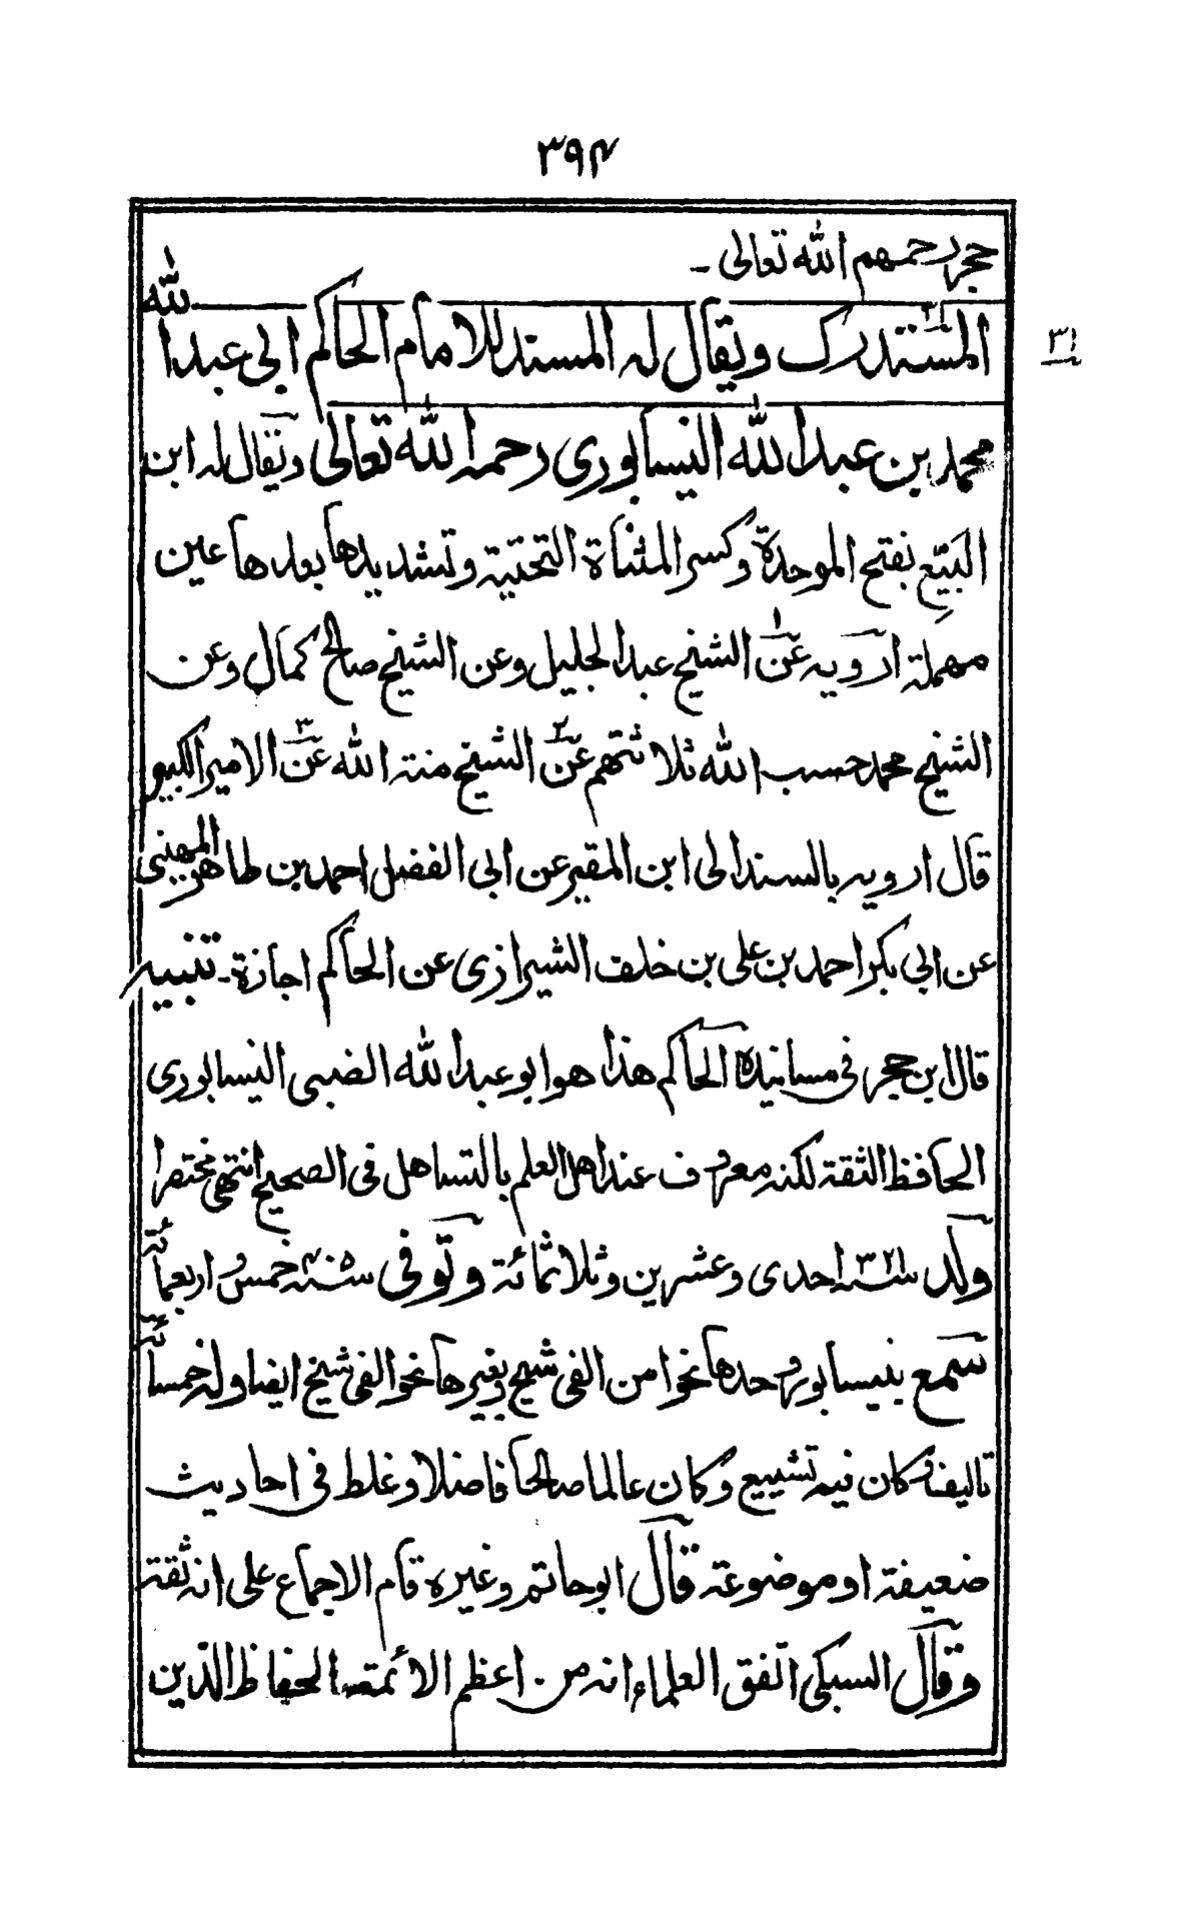 ٣٩٤
حجر رحمهم الله تعالى ـ
٣١
المستدرك ويقال له المسند للامام الحاكم ابي عبد الله
محمد بن عبد الله النيسابوري رحمه الله تعالى ويقال له ابن
البَيِّع بفتح الموحدة وكسر المثناة التحتية وتشديدها بعدها عين
مهملة ارويه عن١ الشيخ عبد الجليل وعن الشيخ صالح كمال وعن
الشيخ محمد حسب الله ثلاثتهم عن٢ الشيخ منة الله عن٣ الامير الكبير
قال ارويه بالسند الى ابن المقير عن ابي الفضل احمد بن طاهر المهيني
عن ابي بكر احمد بن علي بن خلف الشيرازي عن الحاكم اجازة ـ تنبيه
قال ابن حجر في مسانيده الحاكم هذا هو ابو عبد الله الضبي النيسابوري
الحافظ الثقة لكنه معروف عند اهل العلم بالتساهل في الصحيح انتهى مختصرا
ولد سنة ٣٢١ احدى وعشرين وثلاثمائة وتوفي سنة ٤٠٥ خمس واربعمائة
سمع بنيسابور وحدها نحوا من الفي شيخ وبغيرها نحو الفي شيخ ايضا وله خمسمائة
تاليف وكان فيه تشييع وكان عالما صالحا فاضلا وغلط في احاديث
ضعيفة او موضوعة قال ابو حاتم وغيره قام الاجماع على انه ثقة
وقال السبكي اتفق العلماء انه من اعظم الائمة الحفاظ الذين